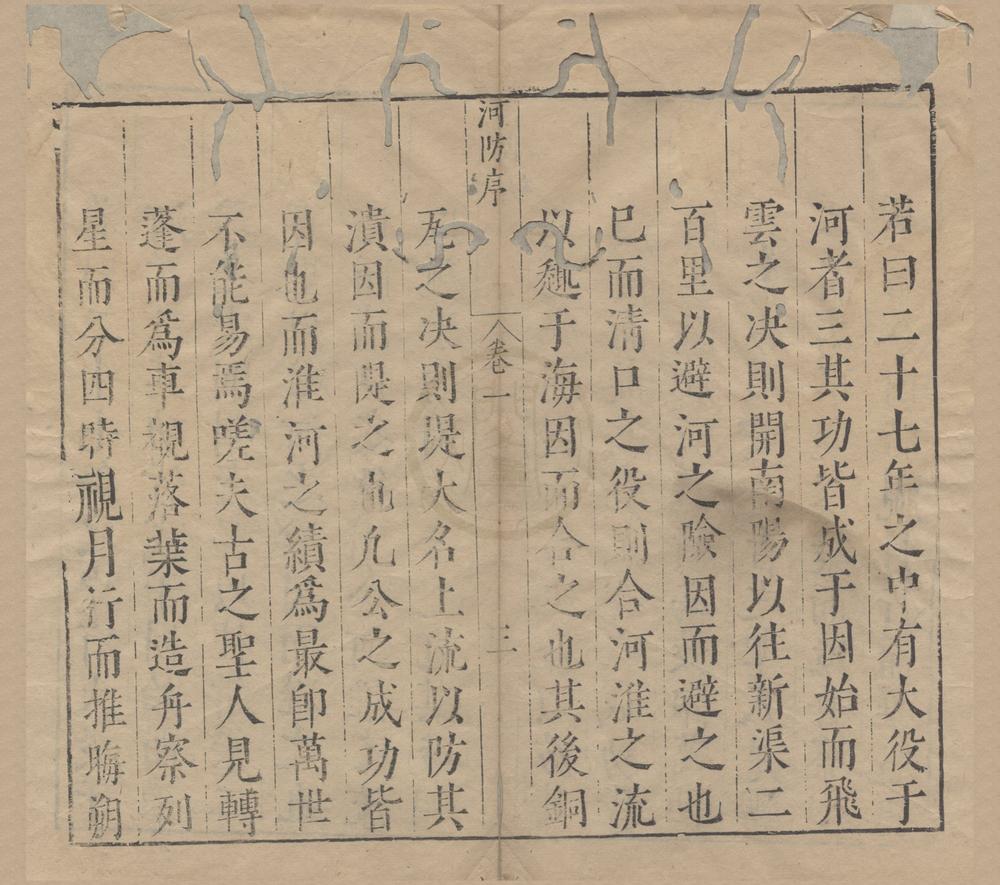 若曰二十七年之中有大役于
河者三其功皆成于因始而飛
雲之决則開南陽以往新渠二
百里以避河之險因而避之也
巳而清口之役則合河淮之流
以趣于海因而合之也其後銅
河防序
卷一
三
瓦之决則堤大名上流以防其
潰因而堤之也凡公之成功皆
因也而淮河之績爲最卽萬世
不能易焉嗟夫古之聖人見轉
蓬而爲車觀落葉而造舟察列
星而分四時視月行而推晦朔